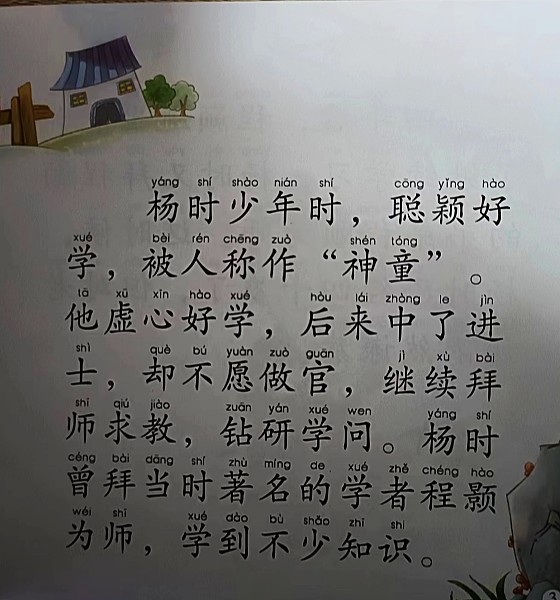 yáng shí shào nián shí cōng yǐng hào
杨时少年时，聪颖好
xué bèi rén chēng zuò shén tóng
学，被人称作“神童”。
tā xū xīn hào xué hòu lái zhòng le jìn
他虚心好学，后来中了进
shì què bú yuàn zuò guān jì xù bài
士，却不愿做官，继续拜
shī qiú jiào zuān yán xué wen yáng shí
师求教，钻研学问。杨时
céng bài dāng shí zhù míng de xué zhě chéng hào
曾拜当时著名的学者程颢
wéi shī xué dào bù shǎo zhī shi
为师，学到不少知识。